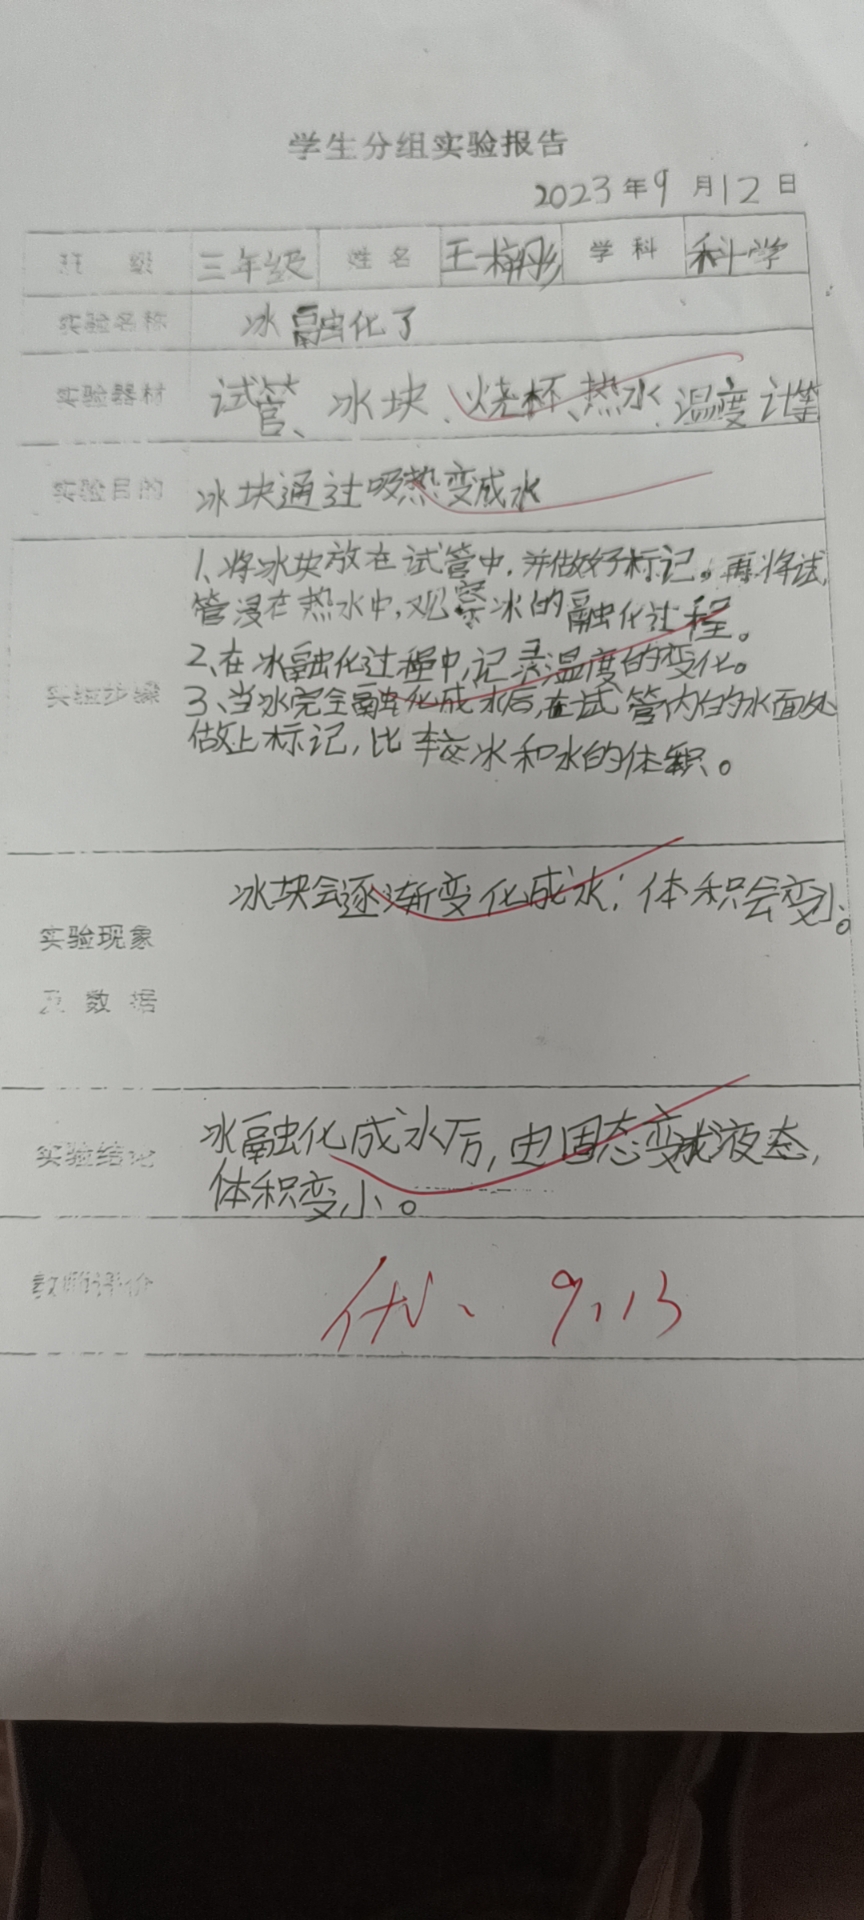 学生分组实验报告
2023年9月12日
班级 三年级 姓名 王梓彤 学科 科学
实验名称 冰融化了
实验器材 试管、冰块、烧杯、热水、温度计等
实验目的 冰块通过吸热变成水
1、将冰块放在试管中,并做好标记。再将试
管浸在热水中,观察冰的融化过程。
2、在冰融化过程中,记录温度的变化。
实验步骤
3、当冰完全融化成水后,在试管内的水面处
做上标记,比较冰和水的体积。
冰块会逐渐变化成水;体积会变小。
实验现象
及数据
实验结论 冰融化成水后,由固态变成液态,
体积变小。
教师评价 优、 9.13